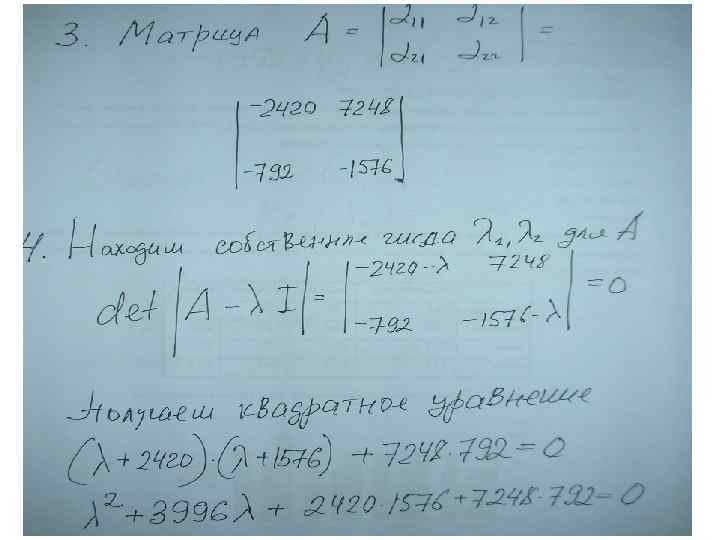 3. Матрица A = |α11 α12| =
|α21 α22|
|-2420 7248|
|-792 -1576|
4. Находим собственные числа λ1, λ2 для A
det |A - λI| = |-2420-λ 7248| = 0
|-792 -1576-λ|
Получаем квадратное уравнение
(λ+2420)·(λ+1576) + 7248·792 = 0
λ² + 3996λ + 2420·1576 + 7248·792 = 0